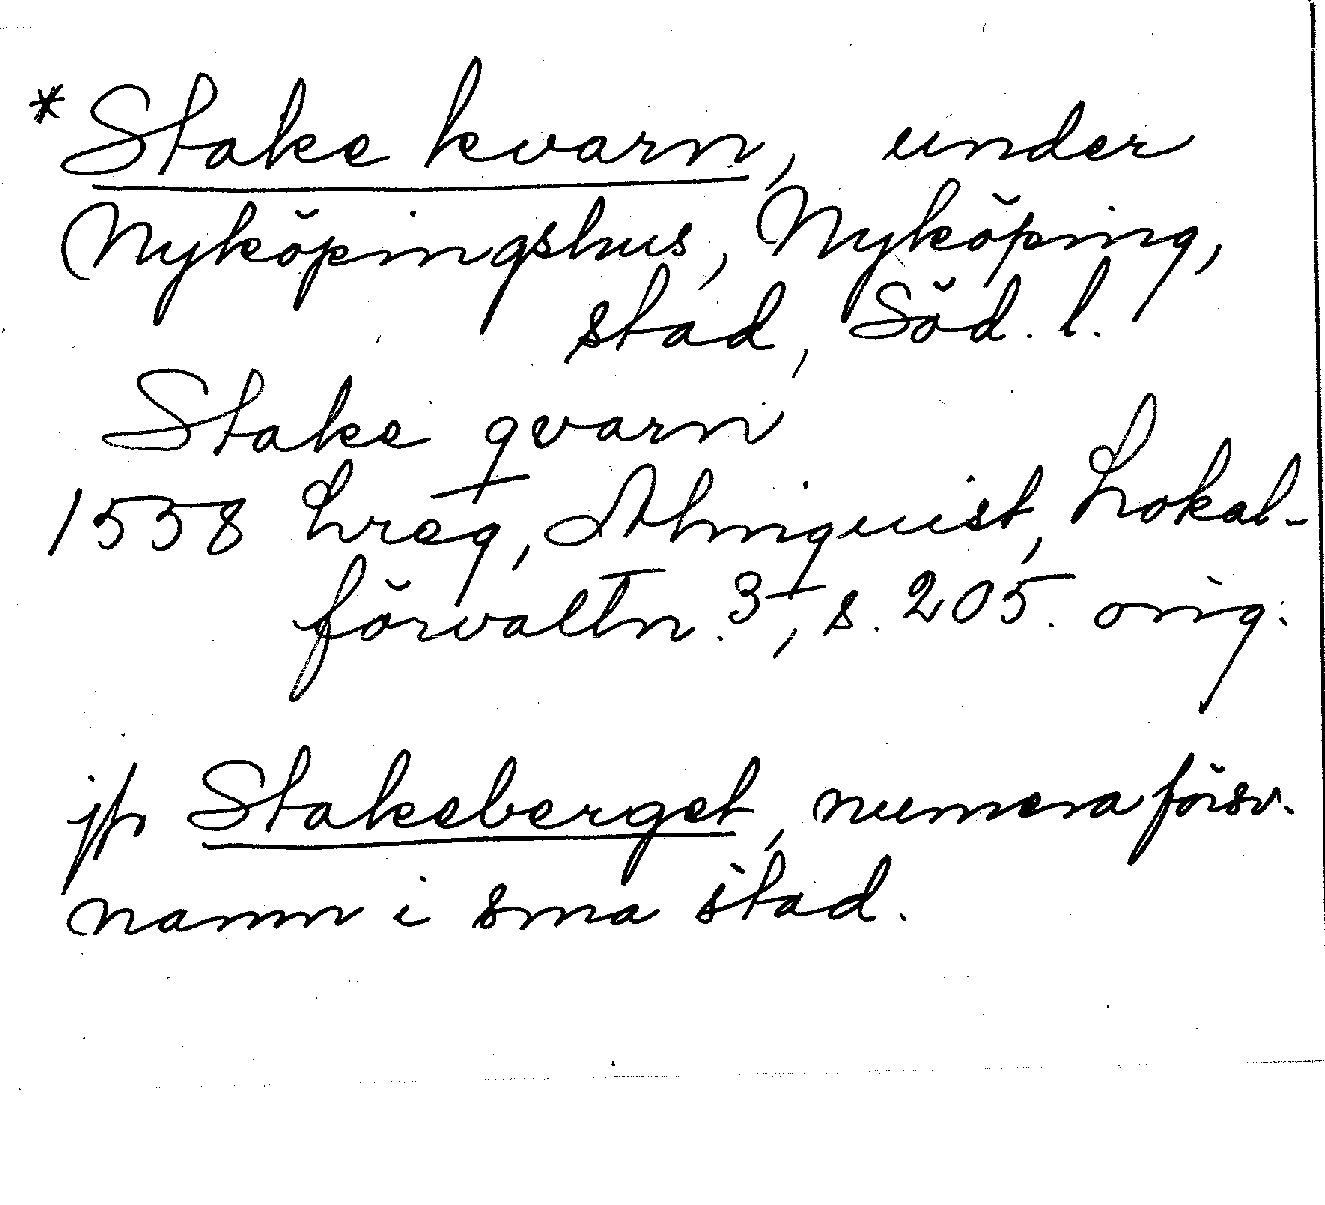 * Stake kvarn, under
Nyköpingshus, Nyköping,
stad, Söd. l.
Stake qvarn
1558 Lreg, Almquist, Lokal-
förvaltn. 3, s. 205. orig.
jfr Stakeberget, numera försv.
namn i sma stad.